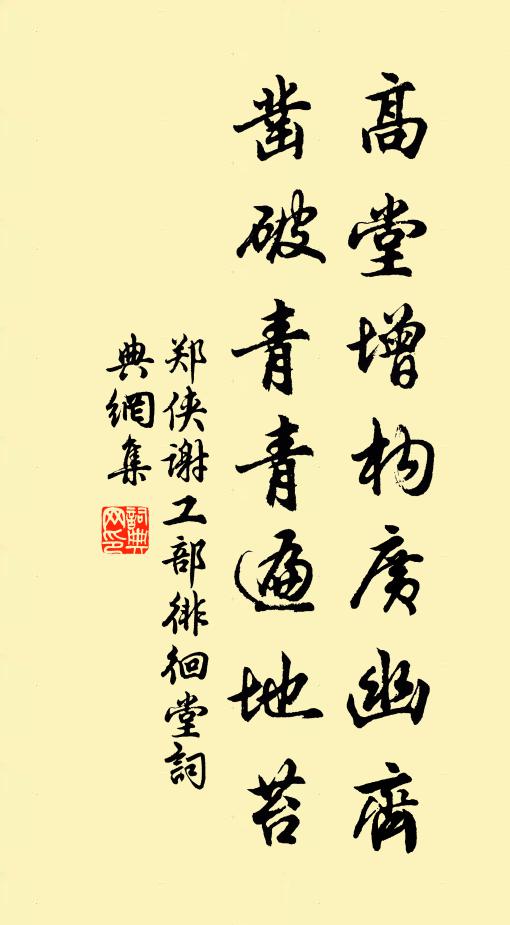 高堂增构广幽齋
凿破青青遍地苔
郑侠谢工部徘徊堂詞
典網集
詞典网印